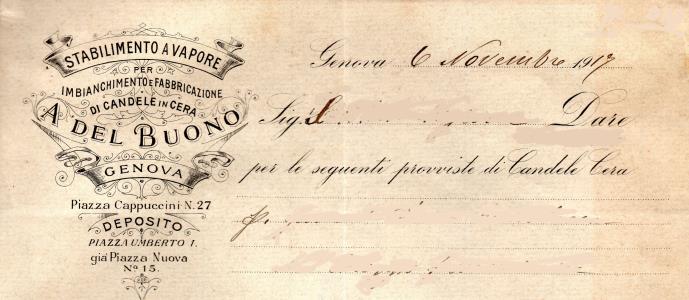 STABILIMENTO A VAPORE
PER
IMBIANCHIMENTO E FABBRICAZIONE
DI CANDELE IN CERA
A DEL BUONO
GENOVA
Piazza Cappuccini N. 27
DEPOSITO
PIAZZA UMBERTO I.
già Piazza Nuova
No 15.
Genova 6 Novembre 1917
Sig. Dare
per le seguenti provviste di Candele Cera